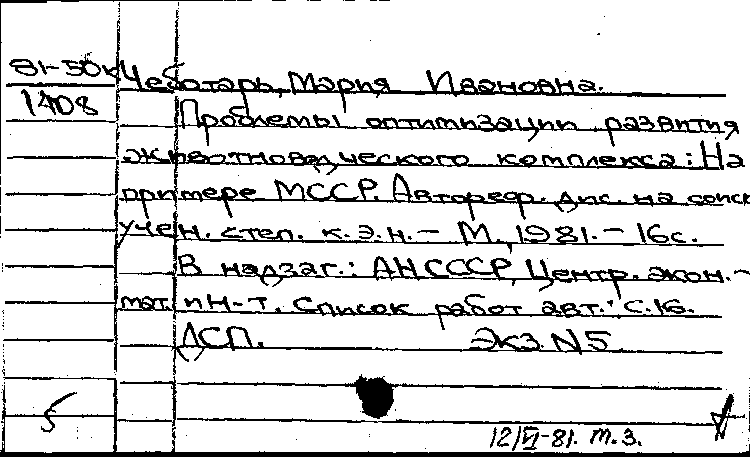 81-50к Чеботарь, Мария Ивановна.
1408
Проблемы оптимизации развития
животноводческого комплекса: На
примере МССР. Автореф. дис. на соиск.
учен. степ. к.э.н. – М., 1981. – 16с.
В надзаг.: АН СССР, Центр. экон.-
мат. ин-т. Список работ авт.: с.16.
ДСП. Экз. N5
5
12/VI-81. т.3.